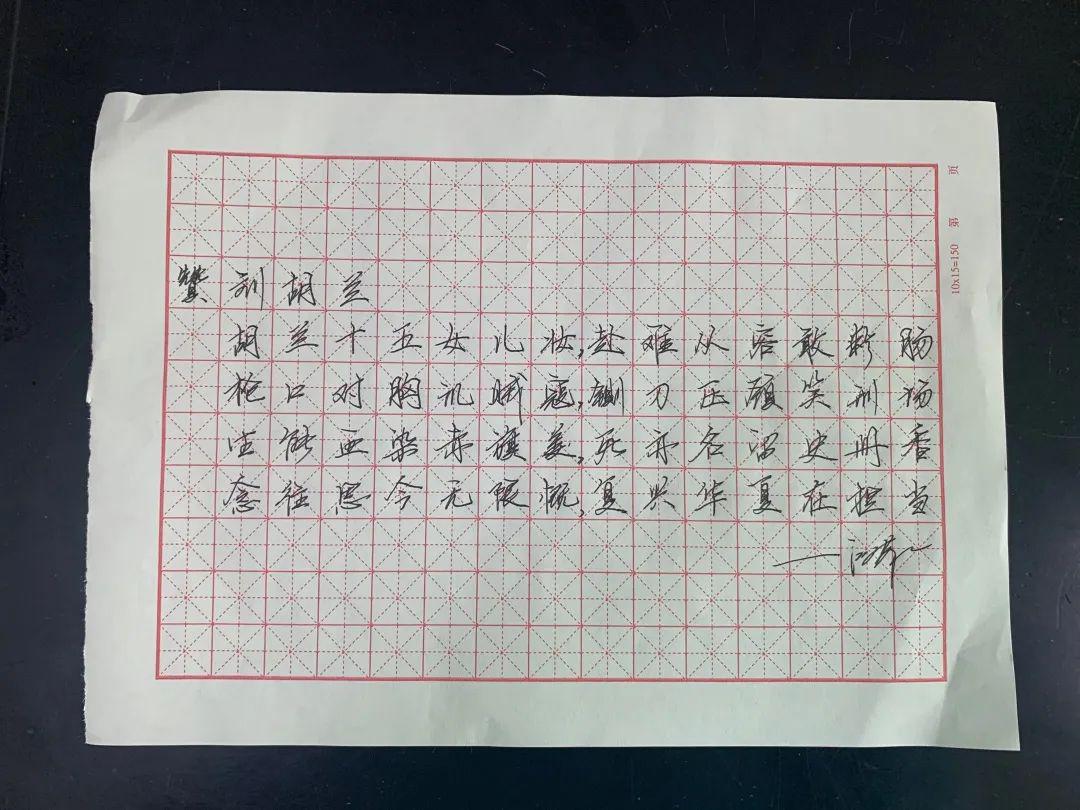 赞刘胡兰
胡兰十五女儿妆,赴难从容敢断肠
枪口对胸讥贼寇,铡刀压颈笑刑场
生能血染赤旗美,死亦名留史册香
念往思今无限慨,复兴华夏在担当
页
第
10x15=150